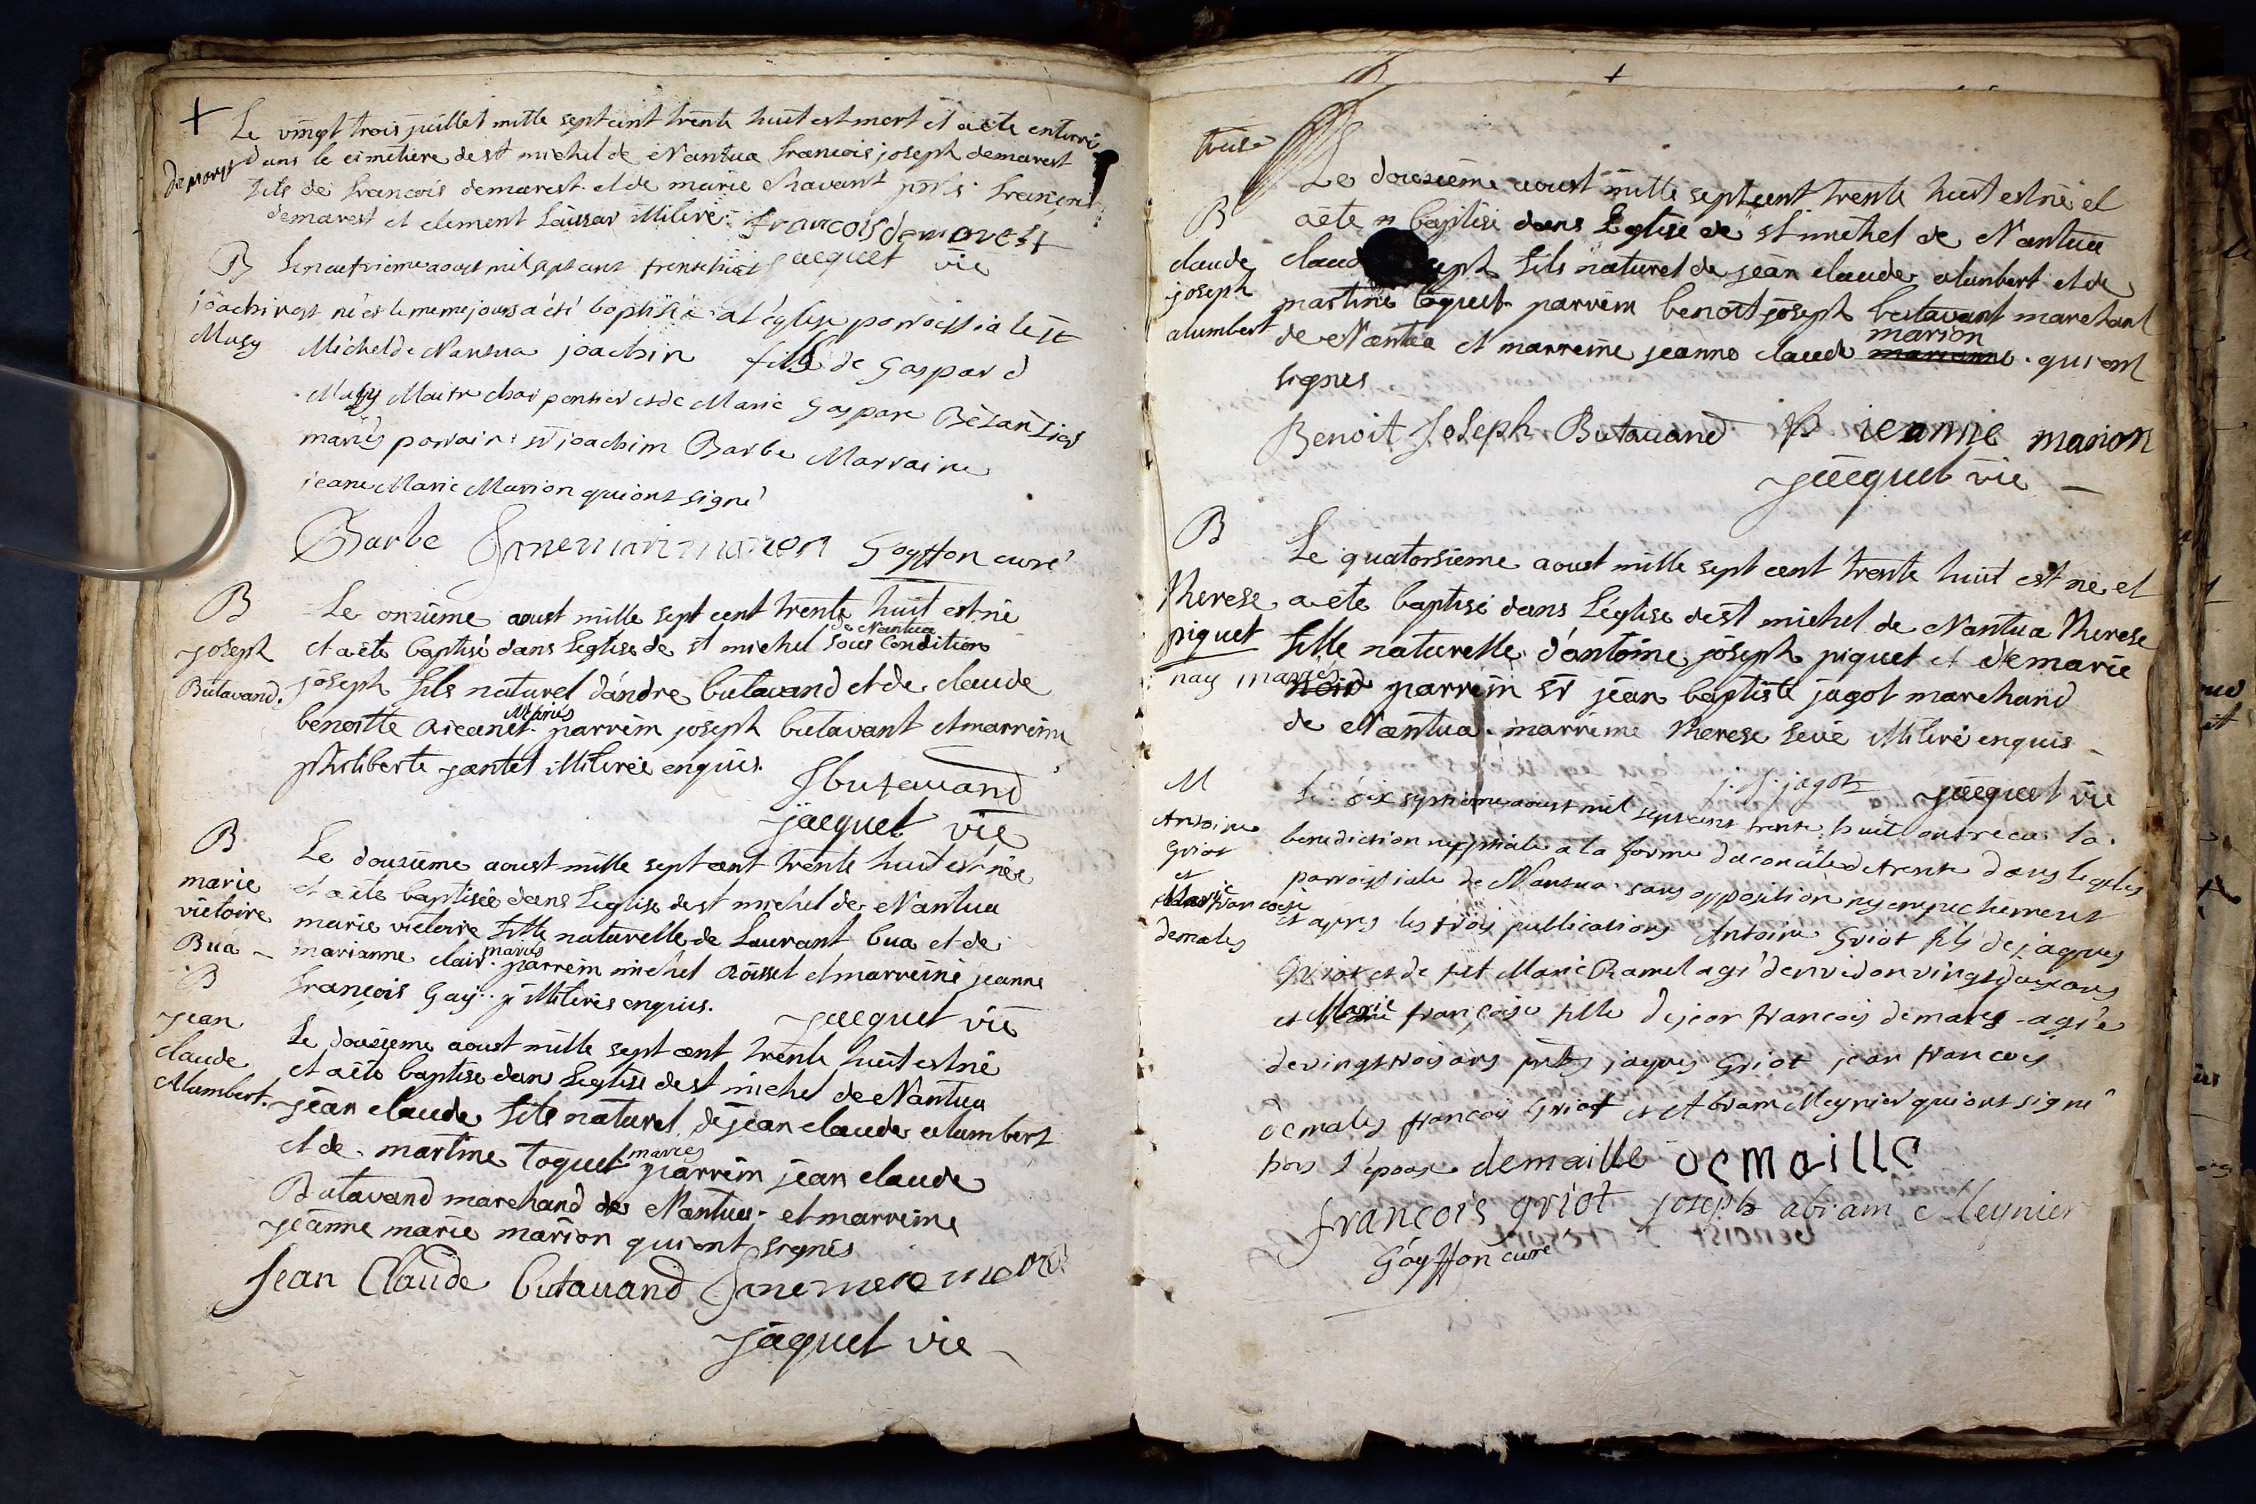 + Le vingt trois juillet mille sept cent trente huit est mort et a ete enterré
demarest dans le cimetiere de st michel de Nantua francois joseph demarest
fils de francois demarest et de marie chavant pnts françois
demarest et clement illiteré francois demarest
jacquet vic
B Le neufvieme aoust mil sept cent trente huict
joachin est né et le meme jour a été baptisé a l'église parroissiale st
Musy Michel de Nantua joachin fils de Gaspard
Musy Maitre charpentier et de Marie Gaspare
mariés parrain sr joachim Barbe Marraine
jeane Marie Marion qui ont signé
Barbe Goyffon curé
B Le onzieme aoust mille sept cent trente huit est né
joseph et a ete baptisé dans Leglise de st michel de Nantua sous condition
Butavand. joseph fils naturel d'andre butavand et de claude
benoitte mariés parrein joseph butavant et marreine
philiberte jantet illiterée enquis.
J butavand
jacquet vic
B Le douzieme aoust mille sept cent trente huit est née
marie et a ete baptisée dans Leglise de st michel de Nantua
victoire marie victoire fille naturelle de Laurant bua et de
Bua - marianne clair mariés parrein michel roisset et marreine jeanne
françois Gay illiterés enquis.
jacquet vic
B
jean Le douzieme aoust mille sept cent trente huit est né
claude et a ete baptise dans Leglise de st michel de Nantua
Alumbert. jean claude fils naturel de jean claude alumbert
et de martine toquet mariés parrein jean claude
Butavand marchand de Nantua et marreine
jeanne marie marion qui ont signés
Jean Claude butauand
jaquet vic

treise
B Le douzieme aoust mille sept cent trente huit est né et
a ete baptisé dans Leglise de st michel de Nantua
claude claude joseph fils naturel de jean claude alumbert et de
joseph martine toquet parrein benoit joseph butavant marchant
alumbert de Nantua et marreine jeanne claude marion qui ont
signés
Benoit Joseph Butauand jeanne marion
jacquet vic
B Le quatorsieme aoust mille sept cent trente huit est né et
therese a ete baptisé dans Léglise de st michel de Nantua therese
piquet fille naturelle d'antoine joseph piquet et de marie
nay mariés parrein sr jean baptiste jagot marchand
de Nantua marreine therese seve illiteré enquis
j. b. jagot jacquet vic
M Le dix septieme aoust mil sept cent trente huit ont receu la
Antoine benediction nuptiale a la forme du concile de trente dans leglise
Griot parroissiale de Nantua sans opposition ny empechement
et Marie francoise et apres les trois publications Antoine Griot fils de jaques
demales Griot et de fet Marie Ramel agé d'environ vingt deux ans
et Marie françoise fille de jean francois demales agée
de vingt trois ans pnts jaques Griot jean francois
demales françois Griot et Abram Meynier qui ont signé
hors l'épouse demaille demaille
francois griot joseph abram Meynier
Goyffon curé